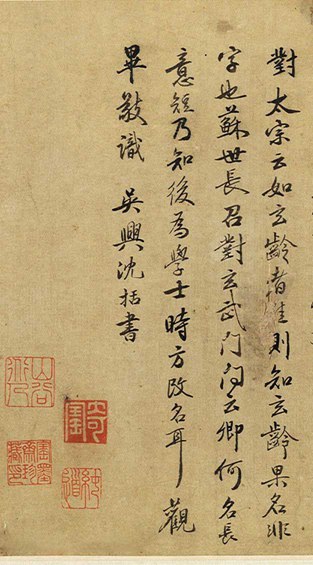 對太宗云如玄齡者佳則知玄齡果名非
字也蘇世長召對玄武門問云卿何名長
意短乃知後為學士時方改名耳觀
畢敬識 吳興沈括書